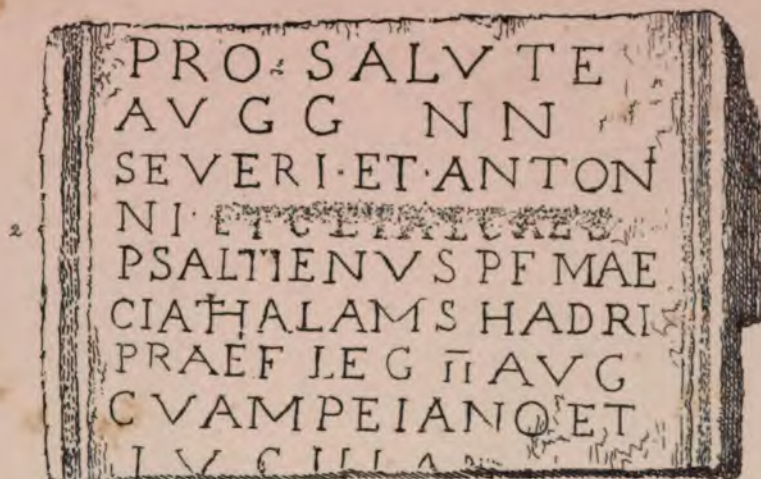 PRO SALVTE
AVGG NN
SEVERI·ET·ANTON
NI·
PSALTIENVS PF MAE
CIATHALAMS HADRI
PRAEF LEG II AVG
CVAMPEIANO ET
2